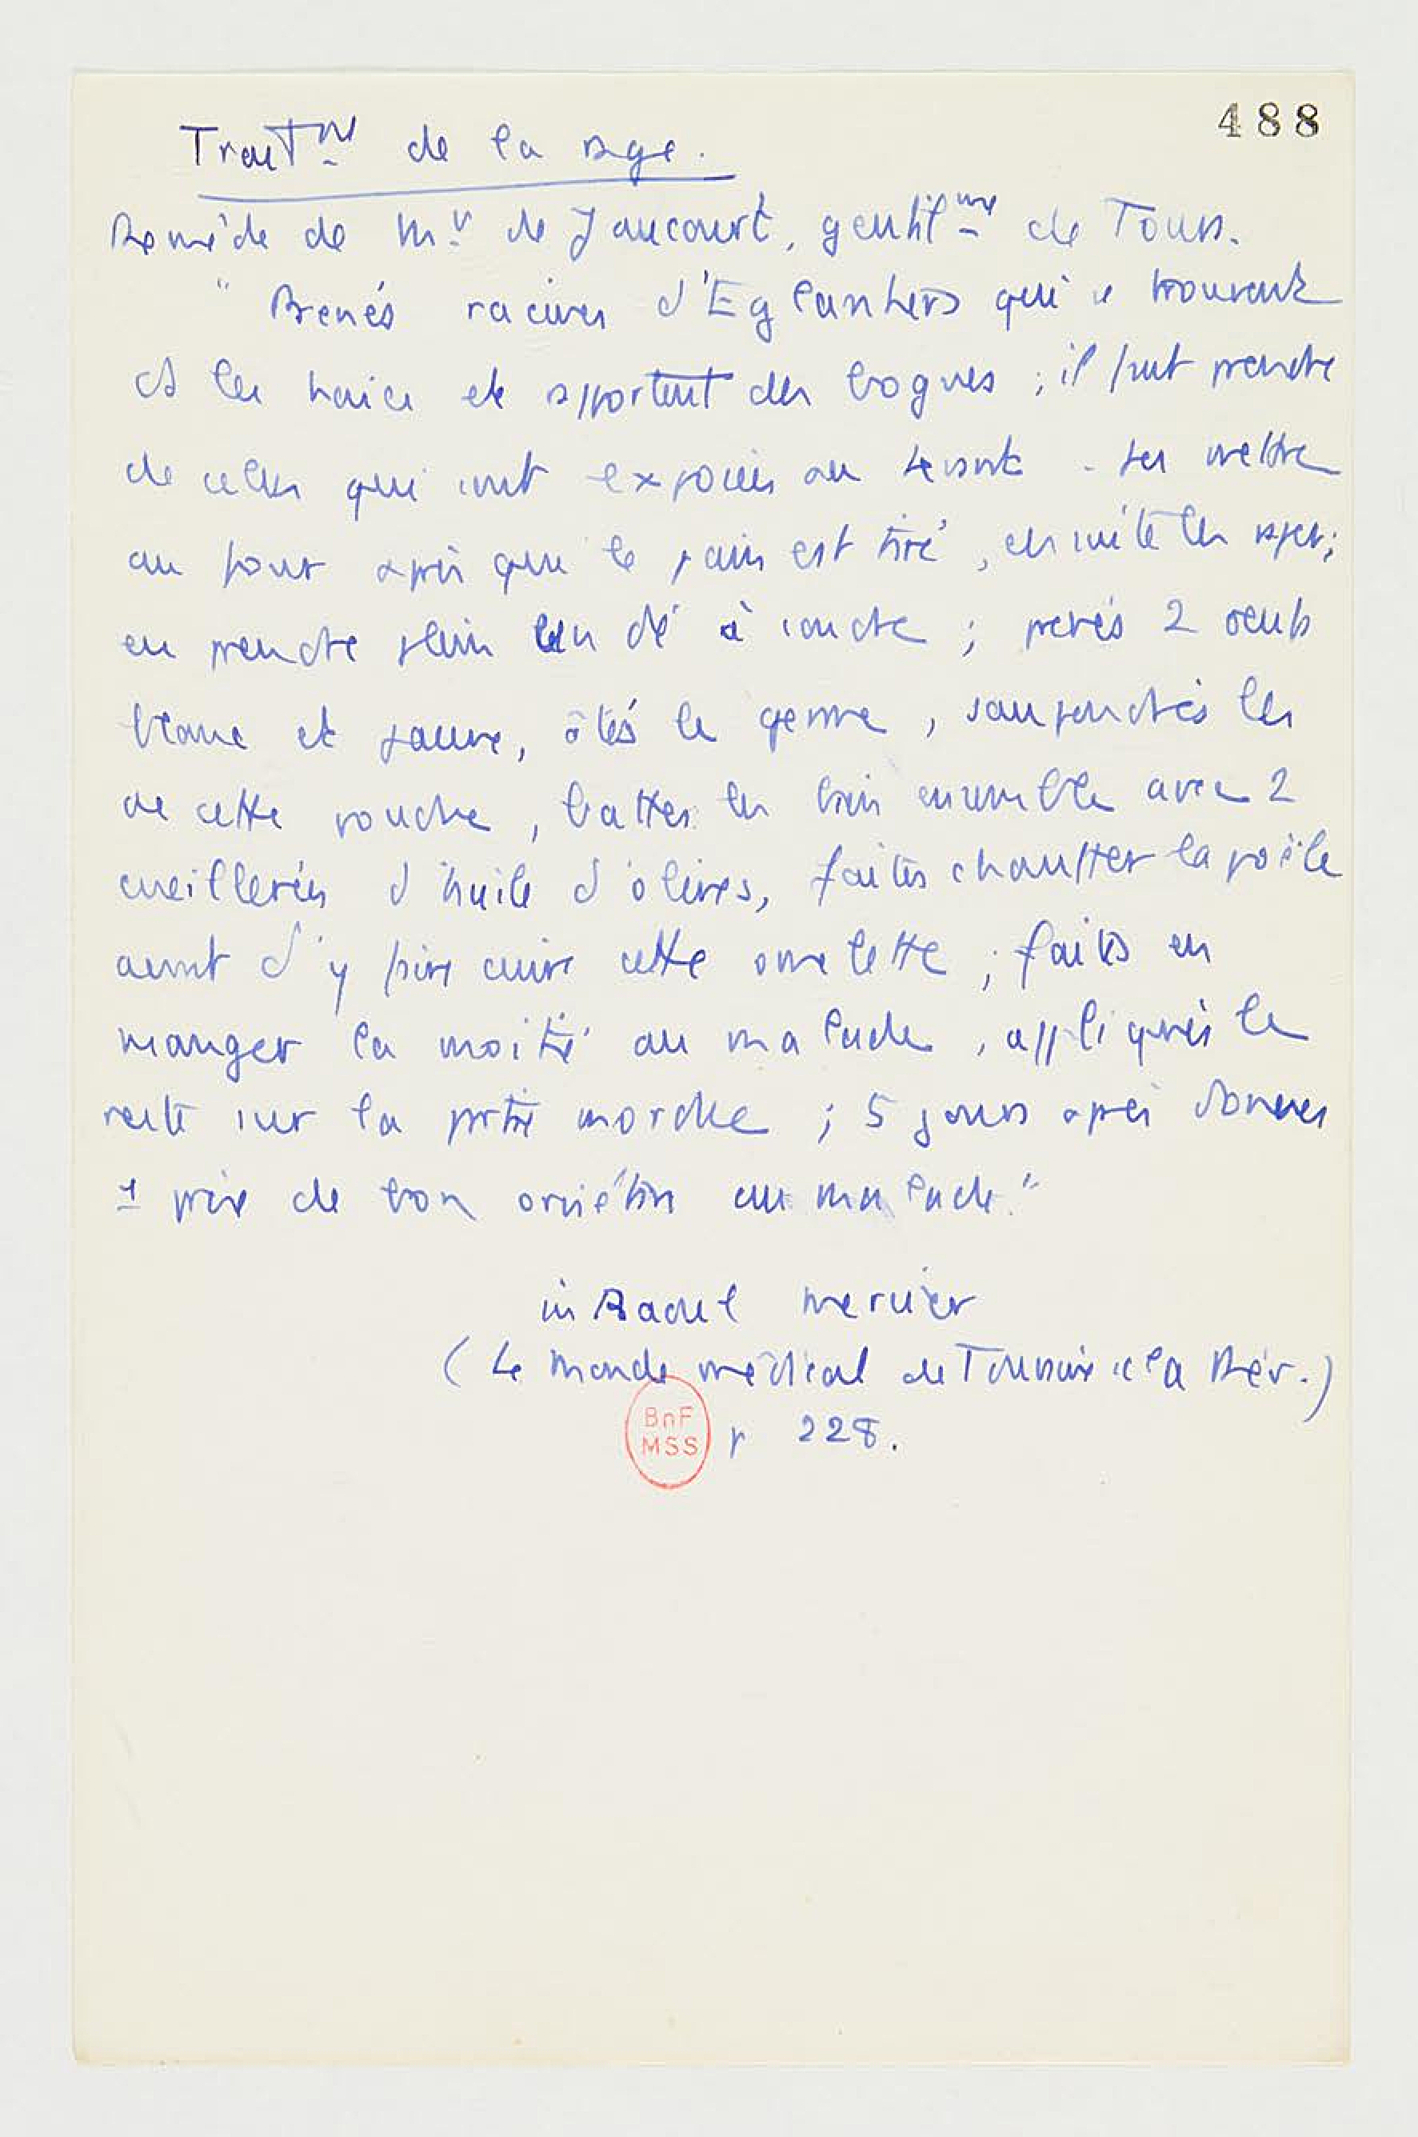 488
Trait^nt de la rage.
Remède de Mr de Jaucourt, gentil^me de Tours.
" Prenés racines d'Eglantiers qui se trouvent
ds les haies et apportent des bogues ; il faut prendre
de celles qui sont exposées au Levant - les mettre
au four après que le pain est tiré, ensuite les raper ;
en prendre plein un dé à coudre ; prenés 2 oeufs
blanc et jaune, ôtés le germe, saupoudrés les
de cette poudre, battes les bien ensemble avec 2
cueillerées d'huile d'olives, faites chauffer la poële
avant d'y faire cuire cette omelette ; faites en
manger la moitié au malade, appliqués le
reste sur la partie mordue ; 5 jours après donner
1 prise de bon orviétan au malade."
in Raoul Mercier
(Le Monde médical de Touraine ss la Rév.)
BnF
MSS
p 228.